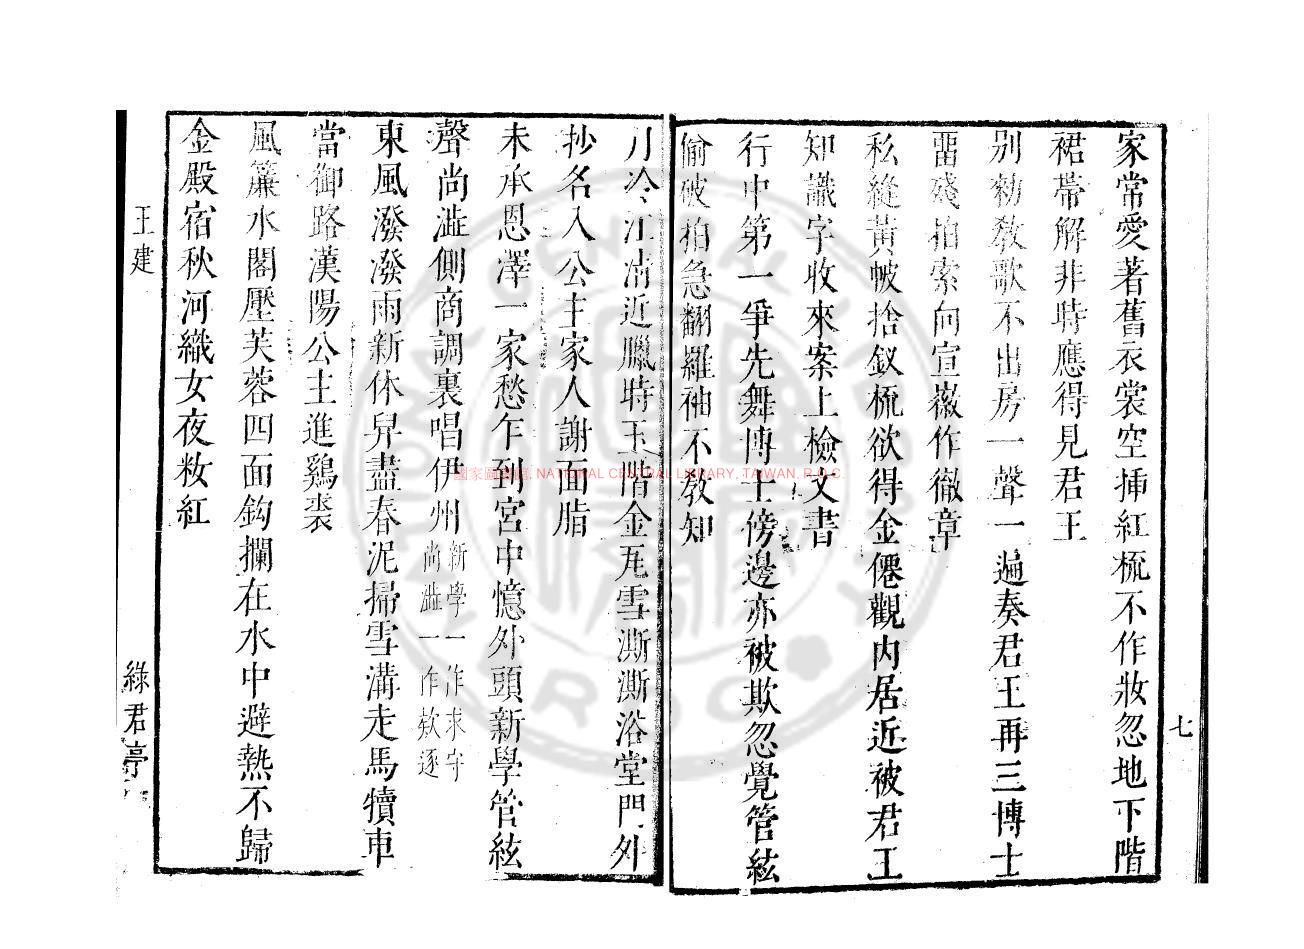 七
家常愛著舊衣裳空揷紅梳不作妝忽地下階
裙帶解非時應得見君王
别勑敎歌不出房一聲一遍奏君王再三博士
畱殘拍索向宣徽作徹章
私縫黃帔捨釵梳欲得金僊觀内居近被君王
知識字收來案上檢文書
行中第一爭先舞博士傍邊亦被欺忽覺管絃
偷破拍急翻羅袖不敎知
月冷江淸近臘時玉階金瓦雪澌澌浴堂門外
抄名入公主家人謝面脂
未承恩澤一家愁乍到宮中憶外頭新學管絃
聲尚澁側商調裏唱伊州新學一作求守
尚澁一作欵逐
東風潑潑雨新休舁盡春泥掃雪溝走馬犢車
當御路漢陽公主進鷄裘
風簾水閣壓芙蓉四面鈎欄在水中避熱不歸
金殿宿秋河織女夜妝紅
王建
綠君亭
國家圖書館, NATIONAL CENTRAL LIBRARY, TAIWAN, R.O.C.